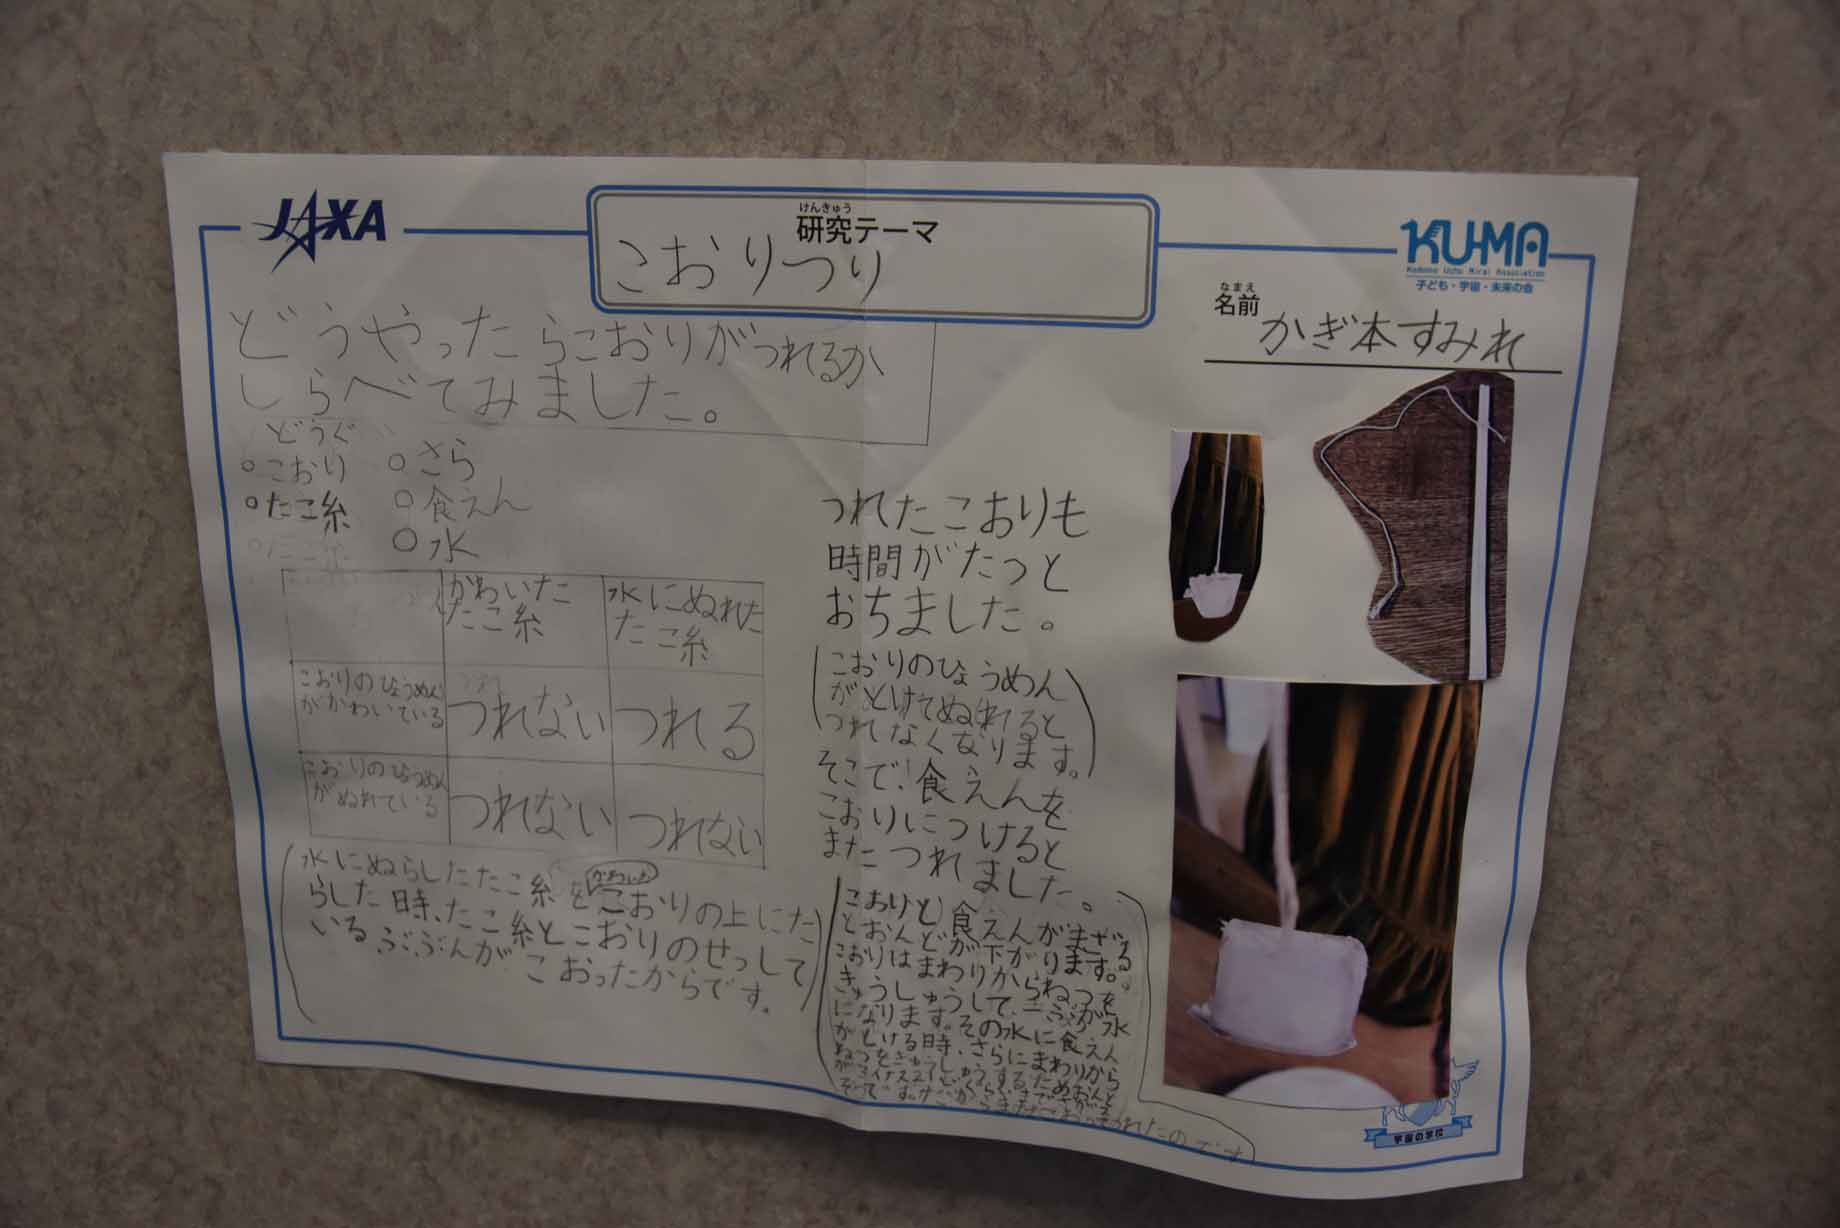 JAXA
けんきゅう
研究テーマ
こおりつり
KU-MA
Kodomo Uchu Mirai Association
子ども・宇宙・未来の会
なまえ
名前
かぎ本すみれ
どうやったらこおりがつれるか
しらべてみました。
どうぐ
○こおり ○さら
○たこ糸 ○食えん
○水
かわいた
たこ糸
水にぬれた
たこ糸
こおりのひょうめん
がかわいている
つれない
つれる
こおりのひょうめん
がぬれている
つれない
つれない
(水にぬらしたたこ糸をかわいたこおりの上にた
らした時、たこ糸とこおりのせっして
いるぶぶんがこおったからです。)
つれたこおりも
時間がたつと
おちました。
(こおりのひょうめん
がとけてぬれると
つれなくなります。)
そこで!食えんを
こおりにつけると
またつれました。
(こおりと食えんがまざる
とおんどが下がります。
こおりはまわりからねつを
きゅうしゅうして、が水
になります。その水に食えん
がとける時、さらにまわりから
ねつをきゅうしゅうするためおんど
宇宙の学校